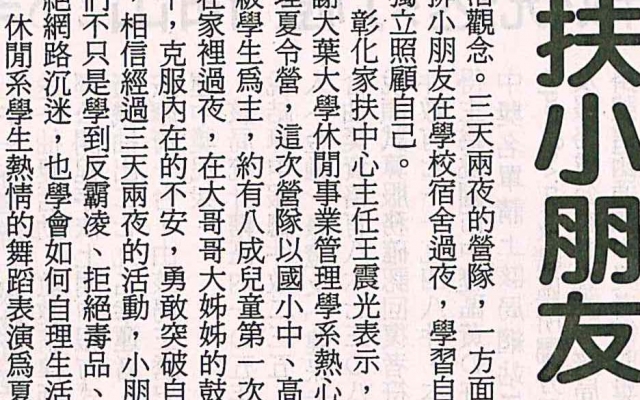 扶小朋友
活觀念。三天兩夜的營隊,一方面
排小朋友在學校宿舍過夜,學習自
獨立照顧自己。
彰化家扶中心主任王震光表示,
謝大葉大學休閒事業管理學系熱心
理夏令營,這次營隊以國小中、高
級學生為主,約有八成兒童第一次
在家裡過夜,在大哥哥大姊姊的鼓
下,克服內在的不安,勇敢突破自
,相信經過三天兩夜的活動,小朋
們不只是學到反霸凌、拒絕毒品、
絕網路沉迷,也學會如何自理生活
休閒系學生熱情的舞蹈表演為夏